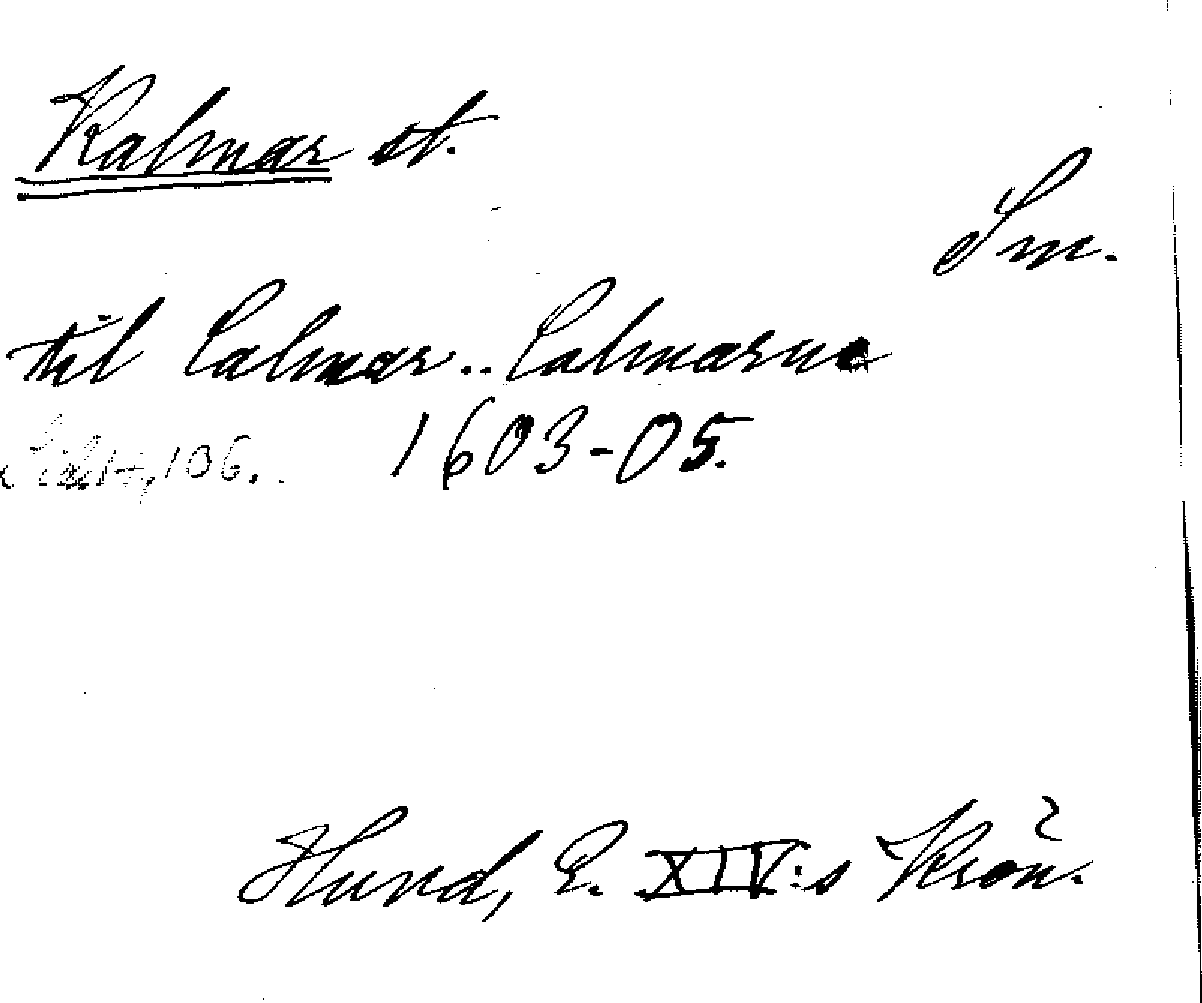 Kalmar st.
Sm.
til Calmar.. Calmarne
106. 1603-05.
Hund, E. XIV:s Krön.